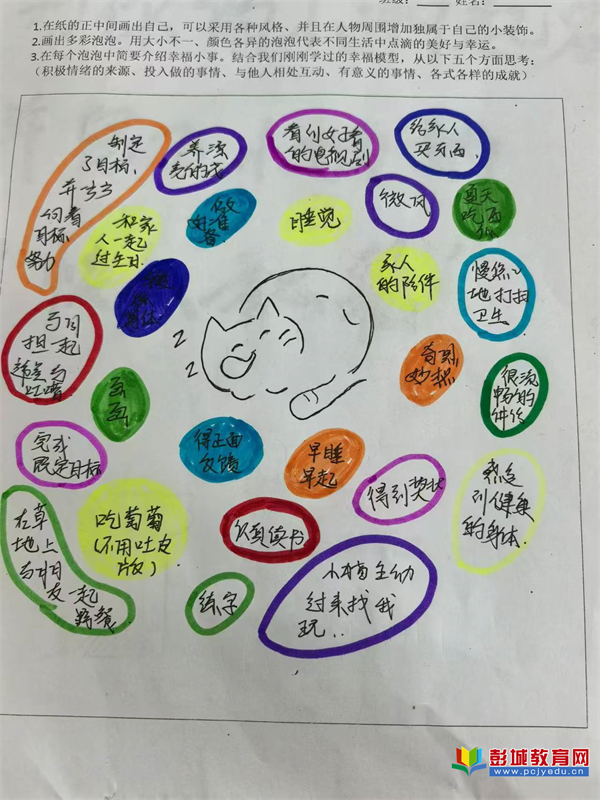 班级： 姓名：
1.在纸的正中间画出自己，可以采用各种风格、并且在人物周围增加独属于自己的小装饰。
2.画出多彩泡泡。用大小不一、颜色各异的泡泡代表不同生活中点滴的美好与幸运。
3.在每个泡泡中简要介绍幸福小事。结合我们刚刚学过的幸福模型，从以下五个方面思考：
（积极情绪的来源、投入做的事情、与他人相处互动、有意义的事情、各式各样的成就）
制定
了目标，
并
向着
目标
努力
看
的电视剧
给家人
买东西，
和家
人一起
过生日.
做
好准
备
睡觉
微风
夏天
吃西
瓜
家人
的陪伴
慢悠悠
地打扫
卫生
身体
z
z
与同
担一起
与
吐槽
奇思
妙想
很流
畅的
画画
完成
既定目标
得正面
反馈
早睡
早起
得到奖状
到健康
的身体.
在草
地上
与朋
友一起
野餐
吃葡萄
(不用吐皮
版)
认真读书
练字
小猫主动
过来找我
玩..
彭城教育网
www.pcjyedu.cn